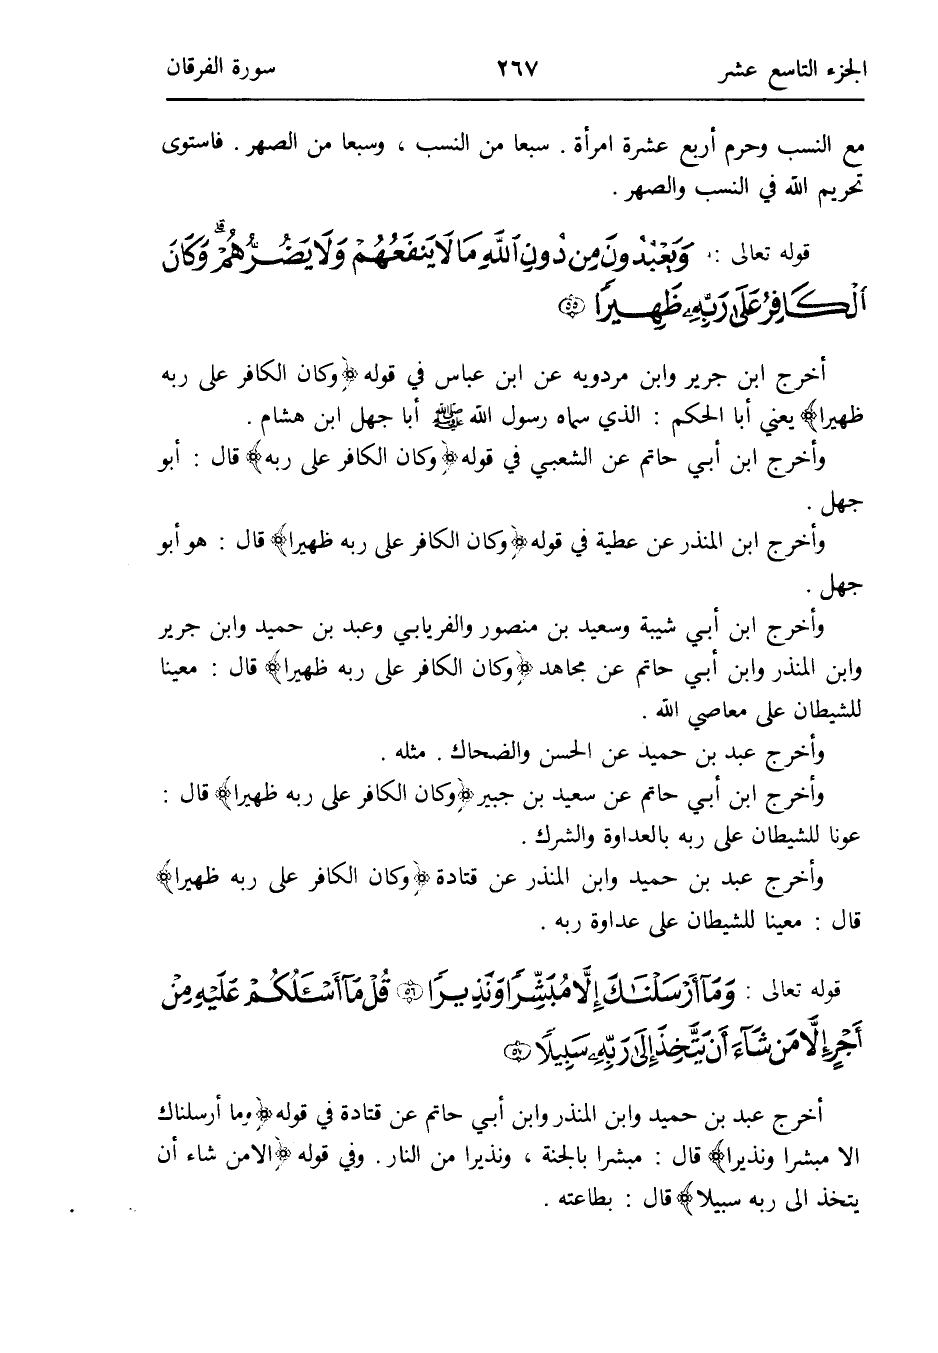 الجزء التاسع عشر ٢٦٧ سورة الفرقان
مع النسب وحرم أربع عشرة امرأة . سبعا من النسب ، وسبعا من الصهر . فاستوى
تحريم الله في النسب والصهر .
قوله تعالى : وَيَعْبُدُونَ مِن دُونِ ٱللَّهِ مَا لَا يَنفَعُهُمْ وَلَا يَضُرُّهُمْ ۗ وَكَانَ
ٱلْكَافِرُ عَلَىٰ رَبِّهِۦ ظَهِيرًا ۝٥٥
أخرج ابن جرير وابن مردويه عن ابن عباس في قوله ﴿وكان الكافر على ربه
ظهيرا﴾ يعني أبا الحكم : الذي سماه رسول الله ﷺ أبا جهل ابن هشام .
وأخرج ابن أبي حاتم عن الشعبي في قوله ﴿وكان الكافر على ربه﴾ قال : أبو
جهل .
وأخرج ابن المنذر عن عطية في قوله ﴿وكان الكافر على ربه ظهيرا﴾ قال : هو أبو
جهل .
وأخرج ابن أبي شيبة وسعيد بن منصور والفريابي وعبد بن حميد وابن جرير
وابن المنذر وابن أبي حاتم عن مجاهد ﴿وكان الكافر على ربه ظهيرا﴾ قال : معينا
للشيطان على معاصي الله .
وأخرج عبد بن حميد عن الحسن والضحاك . مثله .
وأخرج ابن أبي حاتم عن سعيد بن جبير ﴿وكان الكافر على ربه ظهيرا﴾ قال :
عونا للشيطان على ربه بالعداوة والشرك .
وأخرج عبد بن حميد وابن المنذر عن قتادة ﴿وكان الكافر على ربه ظهيرا﴾
قال : معينا للشيطان على عداوة ربه .
قوله تعالى : وَمَآ أَرْسَلْنَـٰكَ إِلَّا مُبَشِّرًا وَنَذِيرًا ۝٥٦ قُلْ مَآ أَسْـَٔلُكُمْ عَلَيْهِ مِنْ
أَجْرٍ إِلَّا مَن شَآءَ أَن يَتَّخِذَ إِلَىٰ رَبِّهِۦ سَبِيلًا ۝٥٧
أخرج عبد بن حميد وابن المنذر وابن أبي حاتم عن قتادة في قوله ﴿وما أرسلناك
الا مبشرا ونذيرا﴾ قال : مبشرا بالجنة ، ونذيرا من النار . وفي قوله ﴿الامن شاء أن
يتخذ الى ربه سبيلا﴾ قال : بطاعته .